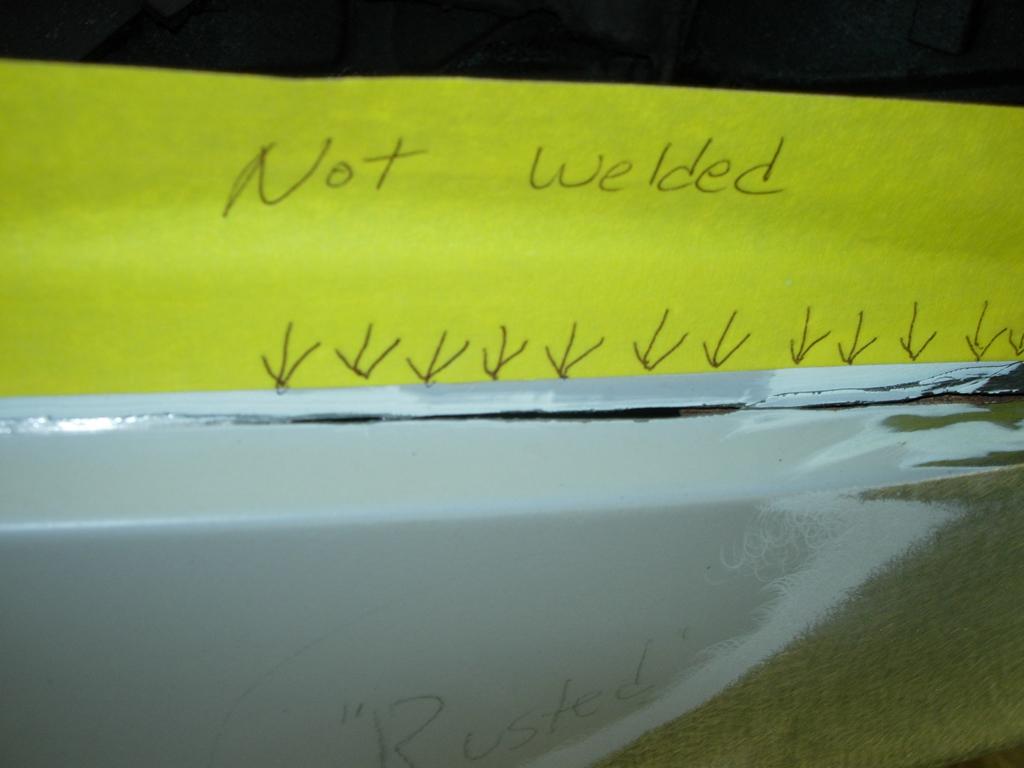 Not welded
"Rusted"